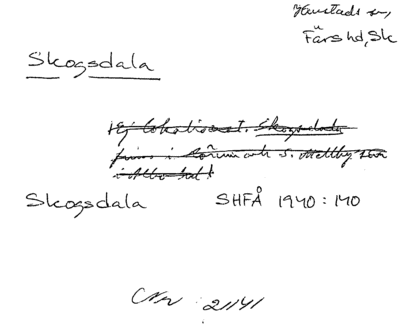 Ystads sn,
Färs hd, Sk
Skogsdala
Ej lokaliserat. Skogsdala
finns i och S. Mellby sn
i Albo hd!
Skogsdala SHFÅ 1940:140
21/41